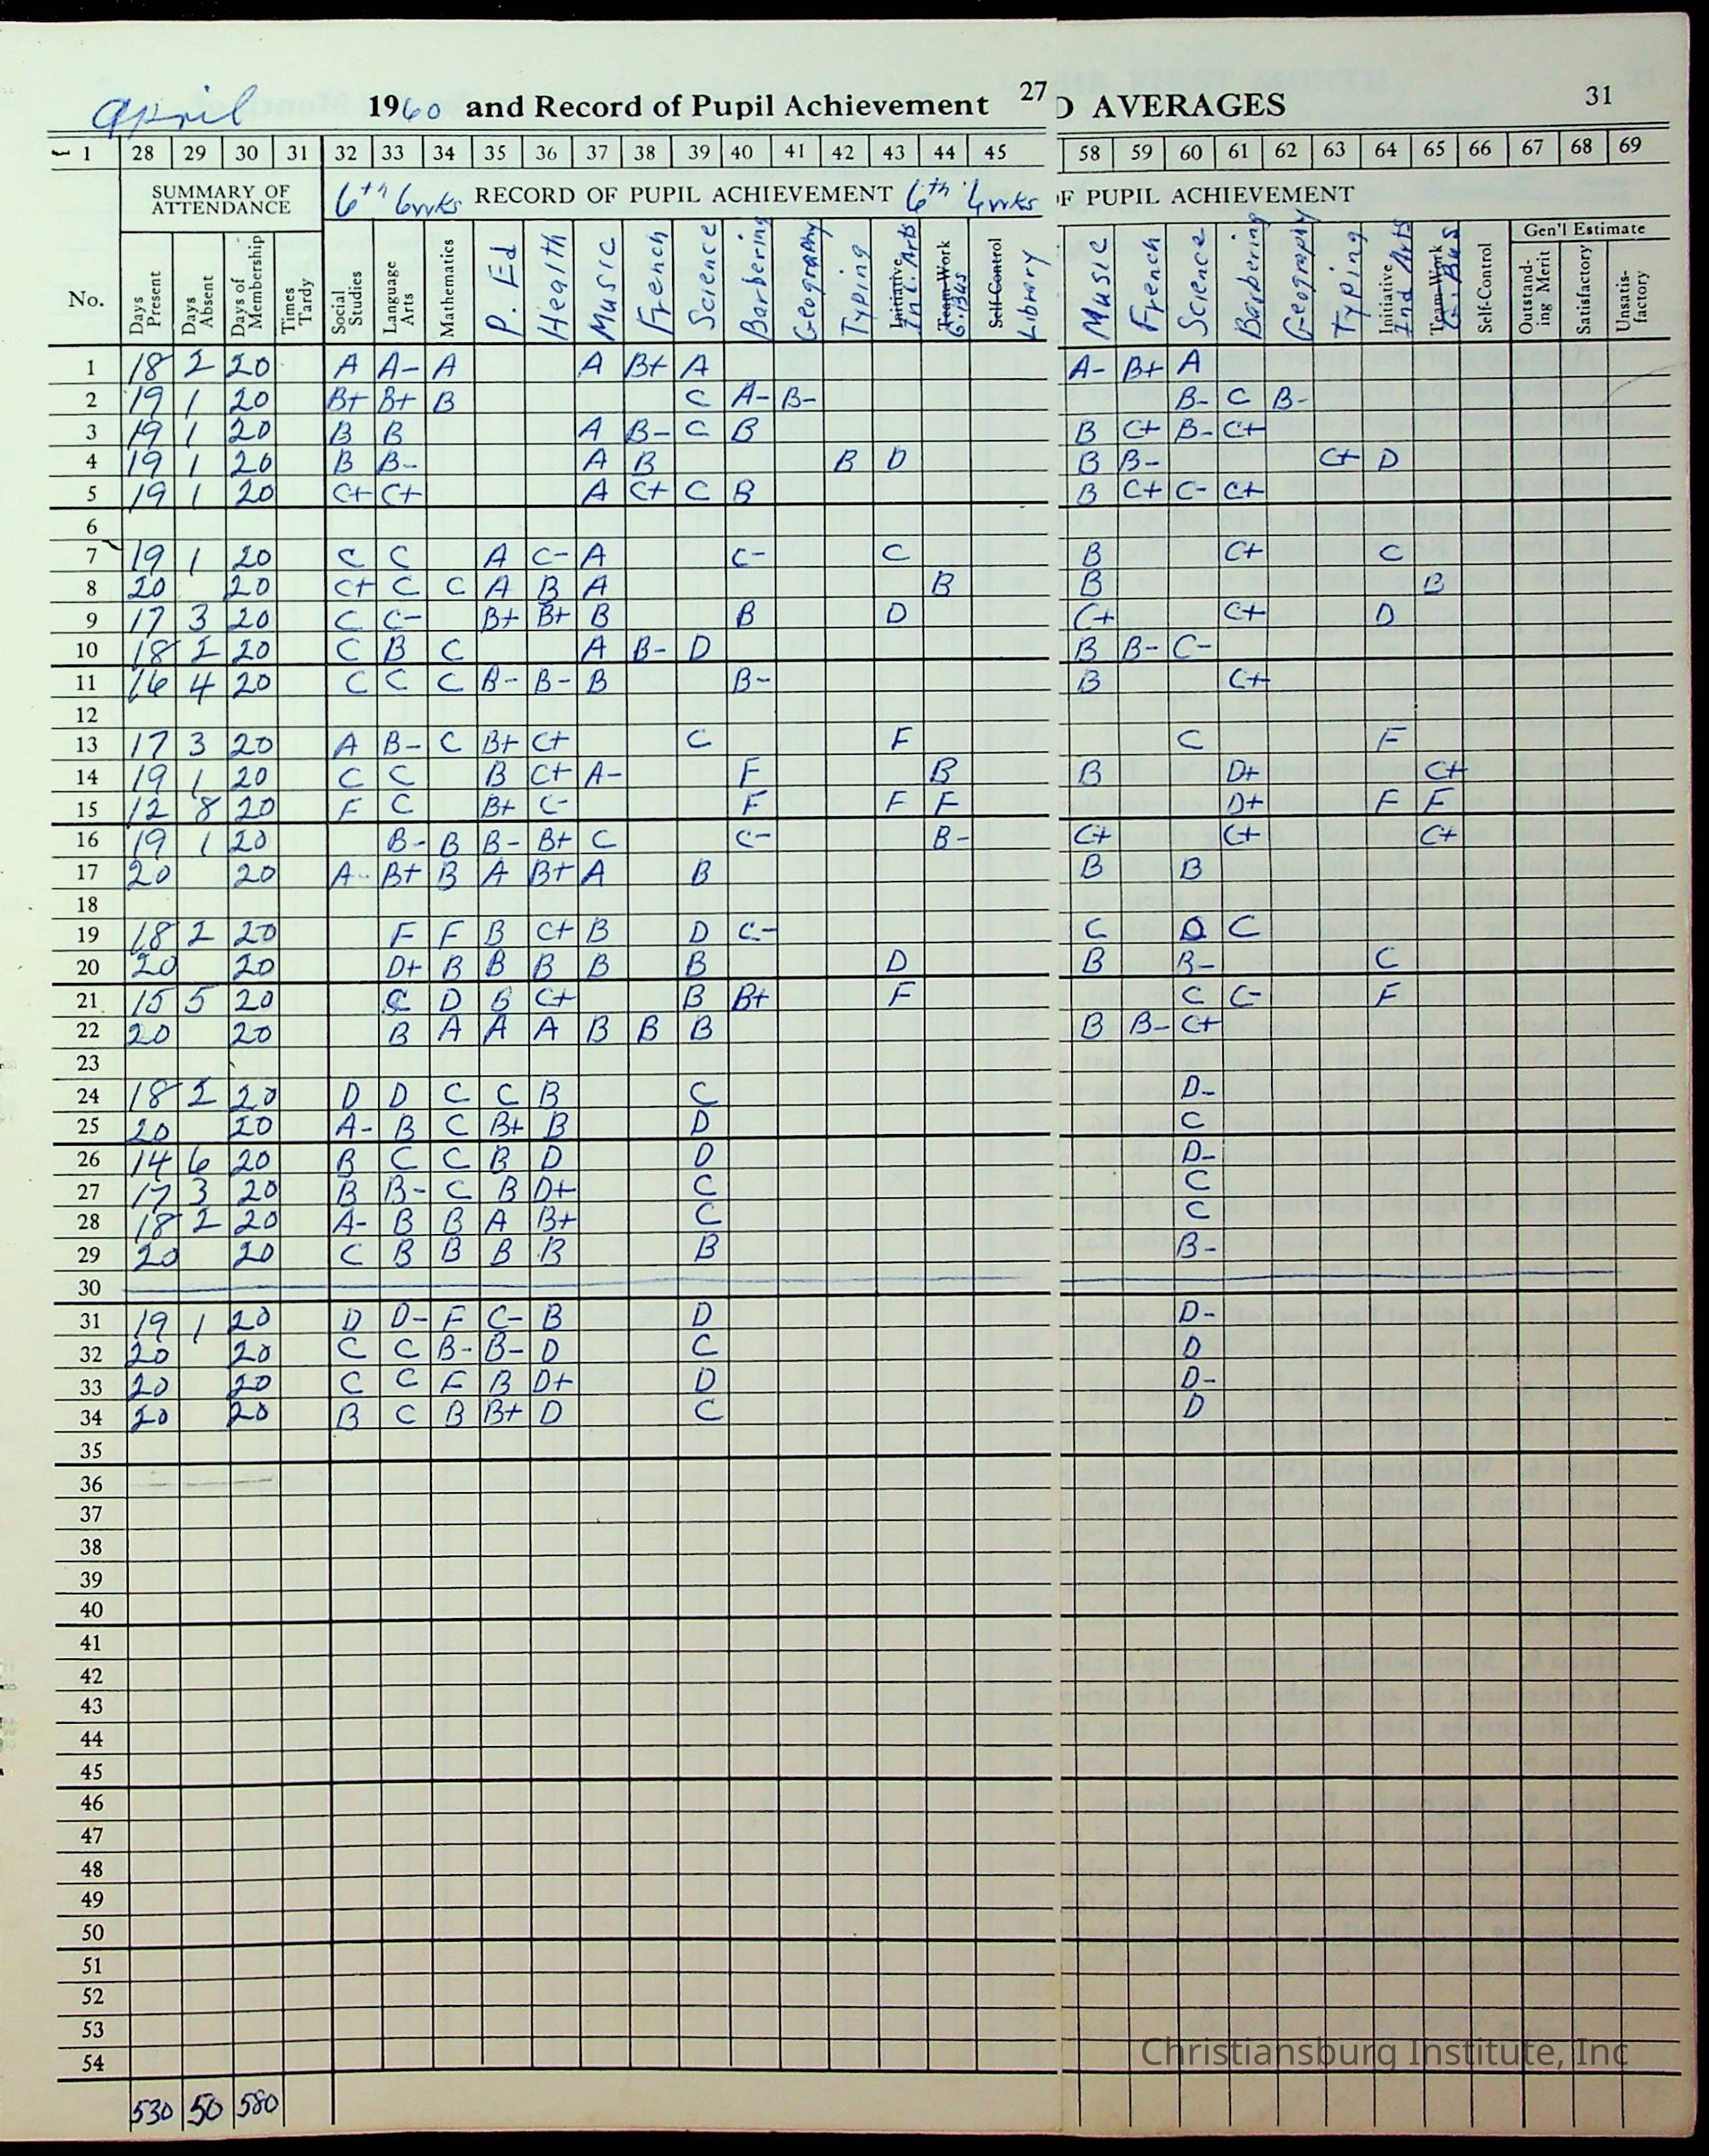 April 1960 and Record of Pupil Achievement 27 D AVERAGES 31
1 28 29 30 31 32 33 34 35 36 37 38 39 40 41 42 43 44 45 58 59 60 61 62 63 64 65 66 67 68 69
SUMMARY OF ATTENDANCE 6th 6wks RECORD OF PUPIL ACHIEVEMENT 6th 6wks OF PUPIL ACHIEVEMENT
Gen'l Estimate
No. Days Present Days Absent Days of Membership Times Tardy Social Studies Language Arts Mathematics P. Ed Health Music French Science Barbering Geography Typing Initiative Ind. Arts Team-Work G. Bus Self-Control Library Music French Science Barbering Geography Typing Initiative Ind Arts Team-Work G. Bus Self-Control Outstanding Merit Satisfactory Unsatisfactory
1 18 2 20 A A- A A B+ A A- B+ A
2 19 1 20 B+ B+ B C A- B- B- C B-
3 19 1 20 B B A B- C B B C+ B- C+
4 19 1 20 B B- A B B D B B- C+ D
5 19 1 20 C+ C+ A C+ C B B C+ C- C+
6
7 19 1 20 C C A C- A C- C B C+ C
8 20 20 C+ C C A B A B B B
9 17 3 20 C C- B+ B+ B B D C+ C+ D
10 18 2 20 C B C A B- D B B- C-
11 16 4 20 C C C B- B- B B- B C+
12
13 17 3 20 A B- C B+ C+ C F C F
14 19 1 20 C C B C+ A- F B B D+ C+
15 12 8 20 F C B+ C- F F F D+ F F
16 19 1 20 B- B B- B+ C C- B- C+ C+ C+
17 20 20 A- B+ B A B+ A B B B
18
19 18 2 20 F F B C+ B D C- C D C
20 20 20 D+ B B B B B D B B- C
21 15 5 20 C D B C+ B B+ F C C- F
22 20 20 B A A A B B B B B- C+
23
24 18 2 20 D D C C B C D-
25 20 20 A- B C B+ B D C
26 14 6 20 B C C B D D D-
27 17 3 20 B B- C B D+ C C
28 18 2 20 A- B B A B+ C C
29 20 20 C B B B B B B-
30
31 19 1 20 D D- F C- B D D-
32 20 20 C C B- B- D C D
33 20 20 C C F B D+ D D-
34 20 20 B C B B+ D C D
35
36
37
38
39
40
41
42
43
44
45
46
47
48
49
50
51
52
53
54
530 50 580
Christiansburg Institute, Inc